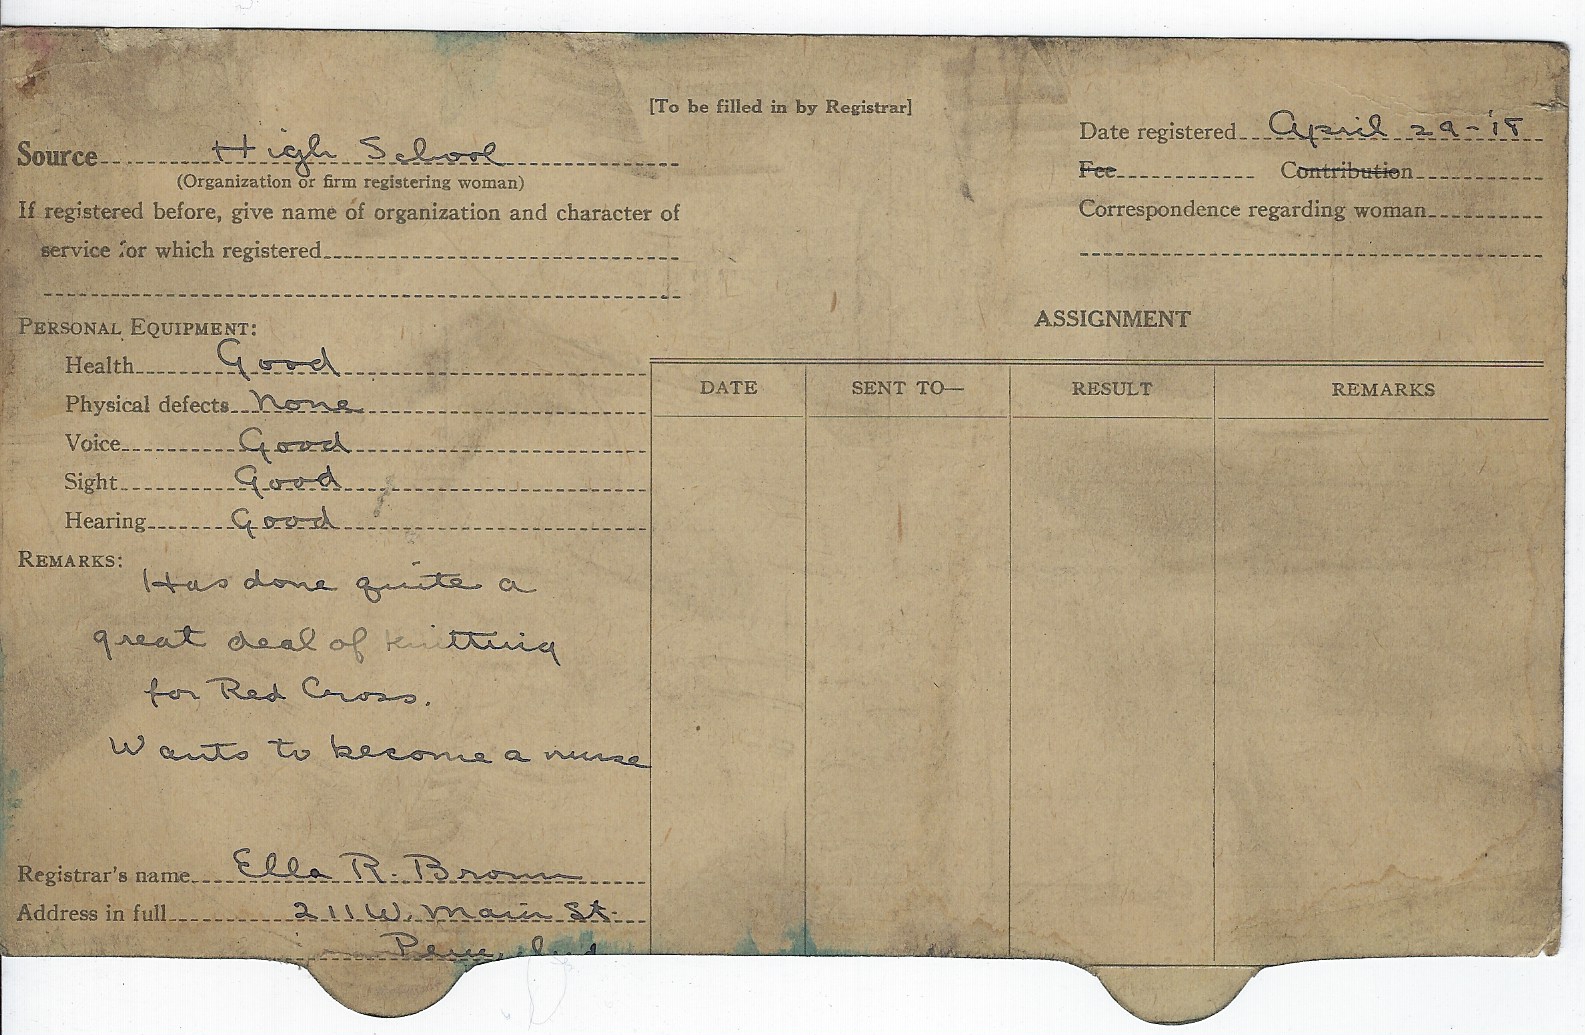 [To be filled in by Registrar]
Source High School
(Organization or firm registering woman)
If registered before, give name of organization and character of
service for which registered
Date registered April 29-'18
Fee Contribution
Correspondence regarding woman
PERSONAL EQUIPMENT:
Health Good
Physical defects None
Voice Good
Sight Good
Hearing Good
REMARKS:
Has done quite a
great deal of knitting
for Red Cross.
Wants to become a nurse
Registrar's name Ella R. Brown
Address in full 211 W. Main St.
Peru, Ind
ASSIGNMENT
DATE SENT TO— RESULT REMARKS